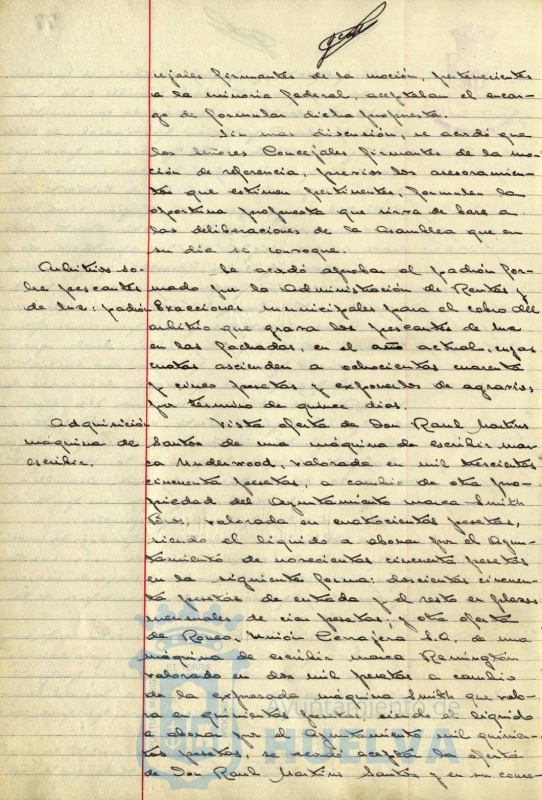 cejales firmantes de la moción, pertenecientes
a la minoria federal, aceptaban el encar-
go de formular dicha propuesta.
Sin mas discusión, se acordó que
los Señores Concejales firmantes de la mo-
ción de referencia, previos los asesoramien-
tos que estimen pertinentes, formulen la
oportuna propuesta que sirva de base a
las deliberaciones de la Asamblea que en
su dia se convoque.
Arbitrios so-
bre pescantes
de luz: padrón
Se acordó aprobar el padrón for-
mado por la Administración de Rentas y
Exacciones municipales para el cobro del
arbitrio que grava los pescantes de luz
en las fachadas, en el año actual, cuyas
cuotas ascienden a ochocientas cuarenta
y cinco pesetas y exponerlos de agravios
por término de quince dias.
Adquisición
máquina de
escribir.
Vista oferta de Don Raul Martins
Santos de una máquina de escribir mar-
ca Underwood, valorada en mil trescientas
cincuenta pesetas, a cambio de otra pro-
piedad del Ayuntamiento marca Smith
Bros, valorada en cuatrocientas pesetas,
siendo el liquido a abonar por el Ayun-
tamiento de novecientas cincuenta pesetas
en la siguiente forma: doscientas cincuen-
ta pesetas de entrada y el resto en plazos
mensuales de cien pesetas; y otra oferta
de Roneo-Unión Cerrajera S.A. de una
máquina de escribir marca Remington
valorada en dos mil pesetas a cambio
de la expresada máquina Smith que valo-
ra en quinientas pesetas siendo el liquido
a abonar por el Ayuntamiento mil quinien-
tas pesetas, se acordó aceptar la oferta
de Don Raul Martins Santos y en su conse-
Ayuntamiento de
HUELVA